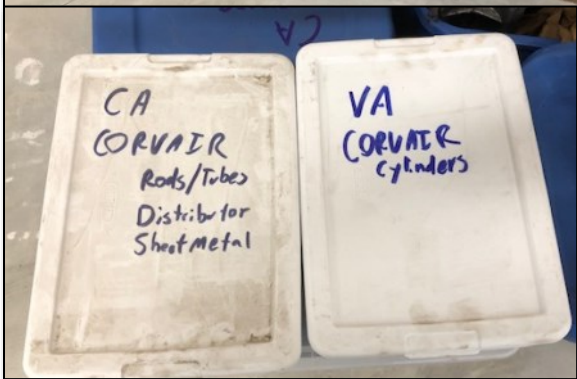 CA
CA
CORVAIR
Rods/Tubes
Distributor
Sheet Metal
VA
CORVAIR
Cylinders